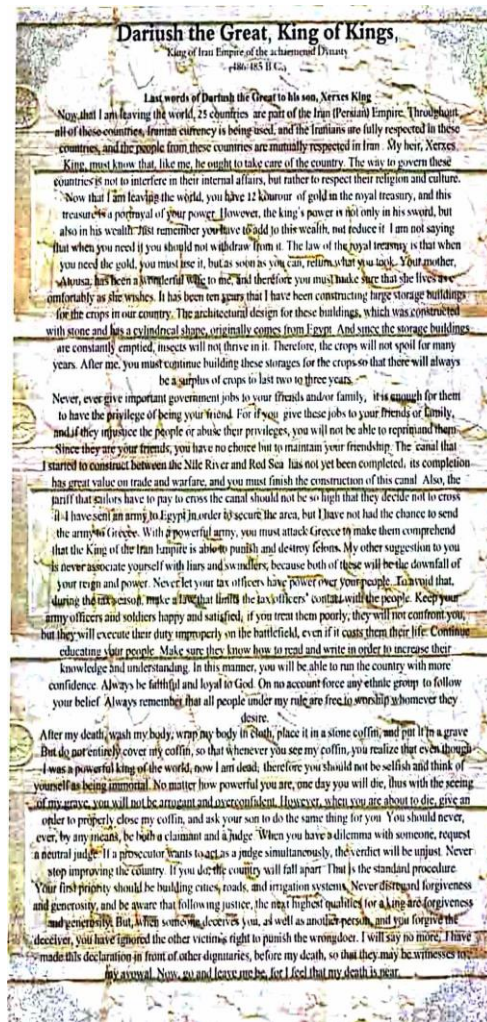 Dariush the Great, King of Kings,
King of Iran Empire of the achaemenid Dinasty
(486-485 B.C.)
Last words of Dariush the Great to his son, Xerxes King
Now that I am leaving the world, 25 countries are part of the Iran (Persian) Empire. Throughout
all of these countries, Iranian currency is being used, and the Iranians are fully respected in these
countries, and the people from these countries are mutually respected in Iran. My heir, Xerxes
King, must know that, like me, he ought to take care of the country. The way to govern these
countries is not to interfere in their internal affairs, but rather to respect their religion and culture.
Now that I am leaving the world, you have 12 kourour of gold in the royal treasury, and this
treasure is a portrayal of your power. However, the king's power is not only in his sword, but
also in his wealth. Just remember you have to add to this wealth, not reduce it. I am not saying
that when you need it you should not withdraw from it. The law of the royal treasury is that when
you need the gold, you must use it, but as soon as you can, return what you took. Your mother,
Atousa, has been a wonderful wife to me, and therefore you must make sure that she lives as
omfortably as she wishes. It has been ten years that I have been constructing large storage buildings
for the crops in our country. The architectural design for these buildings, which was constructed
with stone and has a cylindrical shape, originally comes from Egypt. And since the storage buildings
are constantly emptied, insects will not thrive in it. Therefore, the crops will not spoil for many
years. After me, you must continue building these storages for the crops so that there will always
be a surplus of crops to last two to three years.
Never, ever give important government jobs to your friends and/or family, it is enough for them
to have the privilege of being your friend. For if you give these jobs to your friends or family,
and if they injustice the people or abuse their privileges, you will not be able to reprimand them
Since they are your friends, you have no choice but to maintain your friendship. The canal that
I started to construct between the Nile River and Red Sea has not yet been completed, its completion
has great value on trade and warfare, and you must finish the construction of this canal. Also, the
tariff that sailors have to pay to cross the canal should not be so high that they decide not to cross
it. I have sent an army to Egypt in order to secure the area, but I have not had the chance to send
the army to Greece. With a powerful army, you must attack Greece to make them comprehend
that the King of the Iran Empire is able to punish and destroy felons. My other suggestion to you
is never associate yourself with liars and swindlers, because both of these will be the downfall of
your reign and power. Never let your tax officers have power over your people. To avoid that,
during the tax season, make a law that limits the tax officers' contact with the people. Keep your
army officers and soldiers happy and satisfied, if you treat them poorly; they will not confront you,
but they will execute their duty improperly on the battlefield, even if it costs them their life. Continue
educating your people. Make sure they know how to read and write in order to increase their
knowledge and understanding. In this manner, you will be able to run the country with more
confidence. Always be faithful and loyal to God. On no account force any ethnic group to follow
your belief. Always remember that all people under my rule are free to worship whomever they
desire.
After my death, wash my body, wrap my body in cloth, place it in a stone coffin, and put it in a grave
But do not entirely cover my coffin, so that whenever you see my coffin, you realize that even though
I was a powerful king of the world, now I am dead; therefore you should not be selfish and think of
yourself as being immortal. No matter how powerful you are, one day you will die, thus with the seeing
of my grave, you will not be arrogant and overconfident. However, when you are about to die, give an
order to properly close my coffin, and ask your son to do the same thing for you. You should never,
ever, by any means, be both a claimant and a judge. When you have a dilemma with someone, request
a neutral judge. If a prosecutor wants to act as a judge simultaneously, the verdict will be unjust. Never
stop improving the country. If you do; the country will fall apart. That is the standard procedure.
Your first priority should be building cities, roads, and irrigation systems. Never disregard forgiveness
and generosity, and be aware that following justice, the next highest qualities for a king are forgiveness
and generosity. But, when someone deceives you, as well as another person, and you forgive the
deceiver, you have ignored the other victim's right to punish the wrongdoer. I will say no more, I have
made this declaration in front of other dignitaries, before my death, so that they may be witnesses to
my avowal. Now, go and leave me be, for I feel that my death is near.